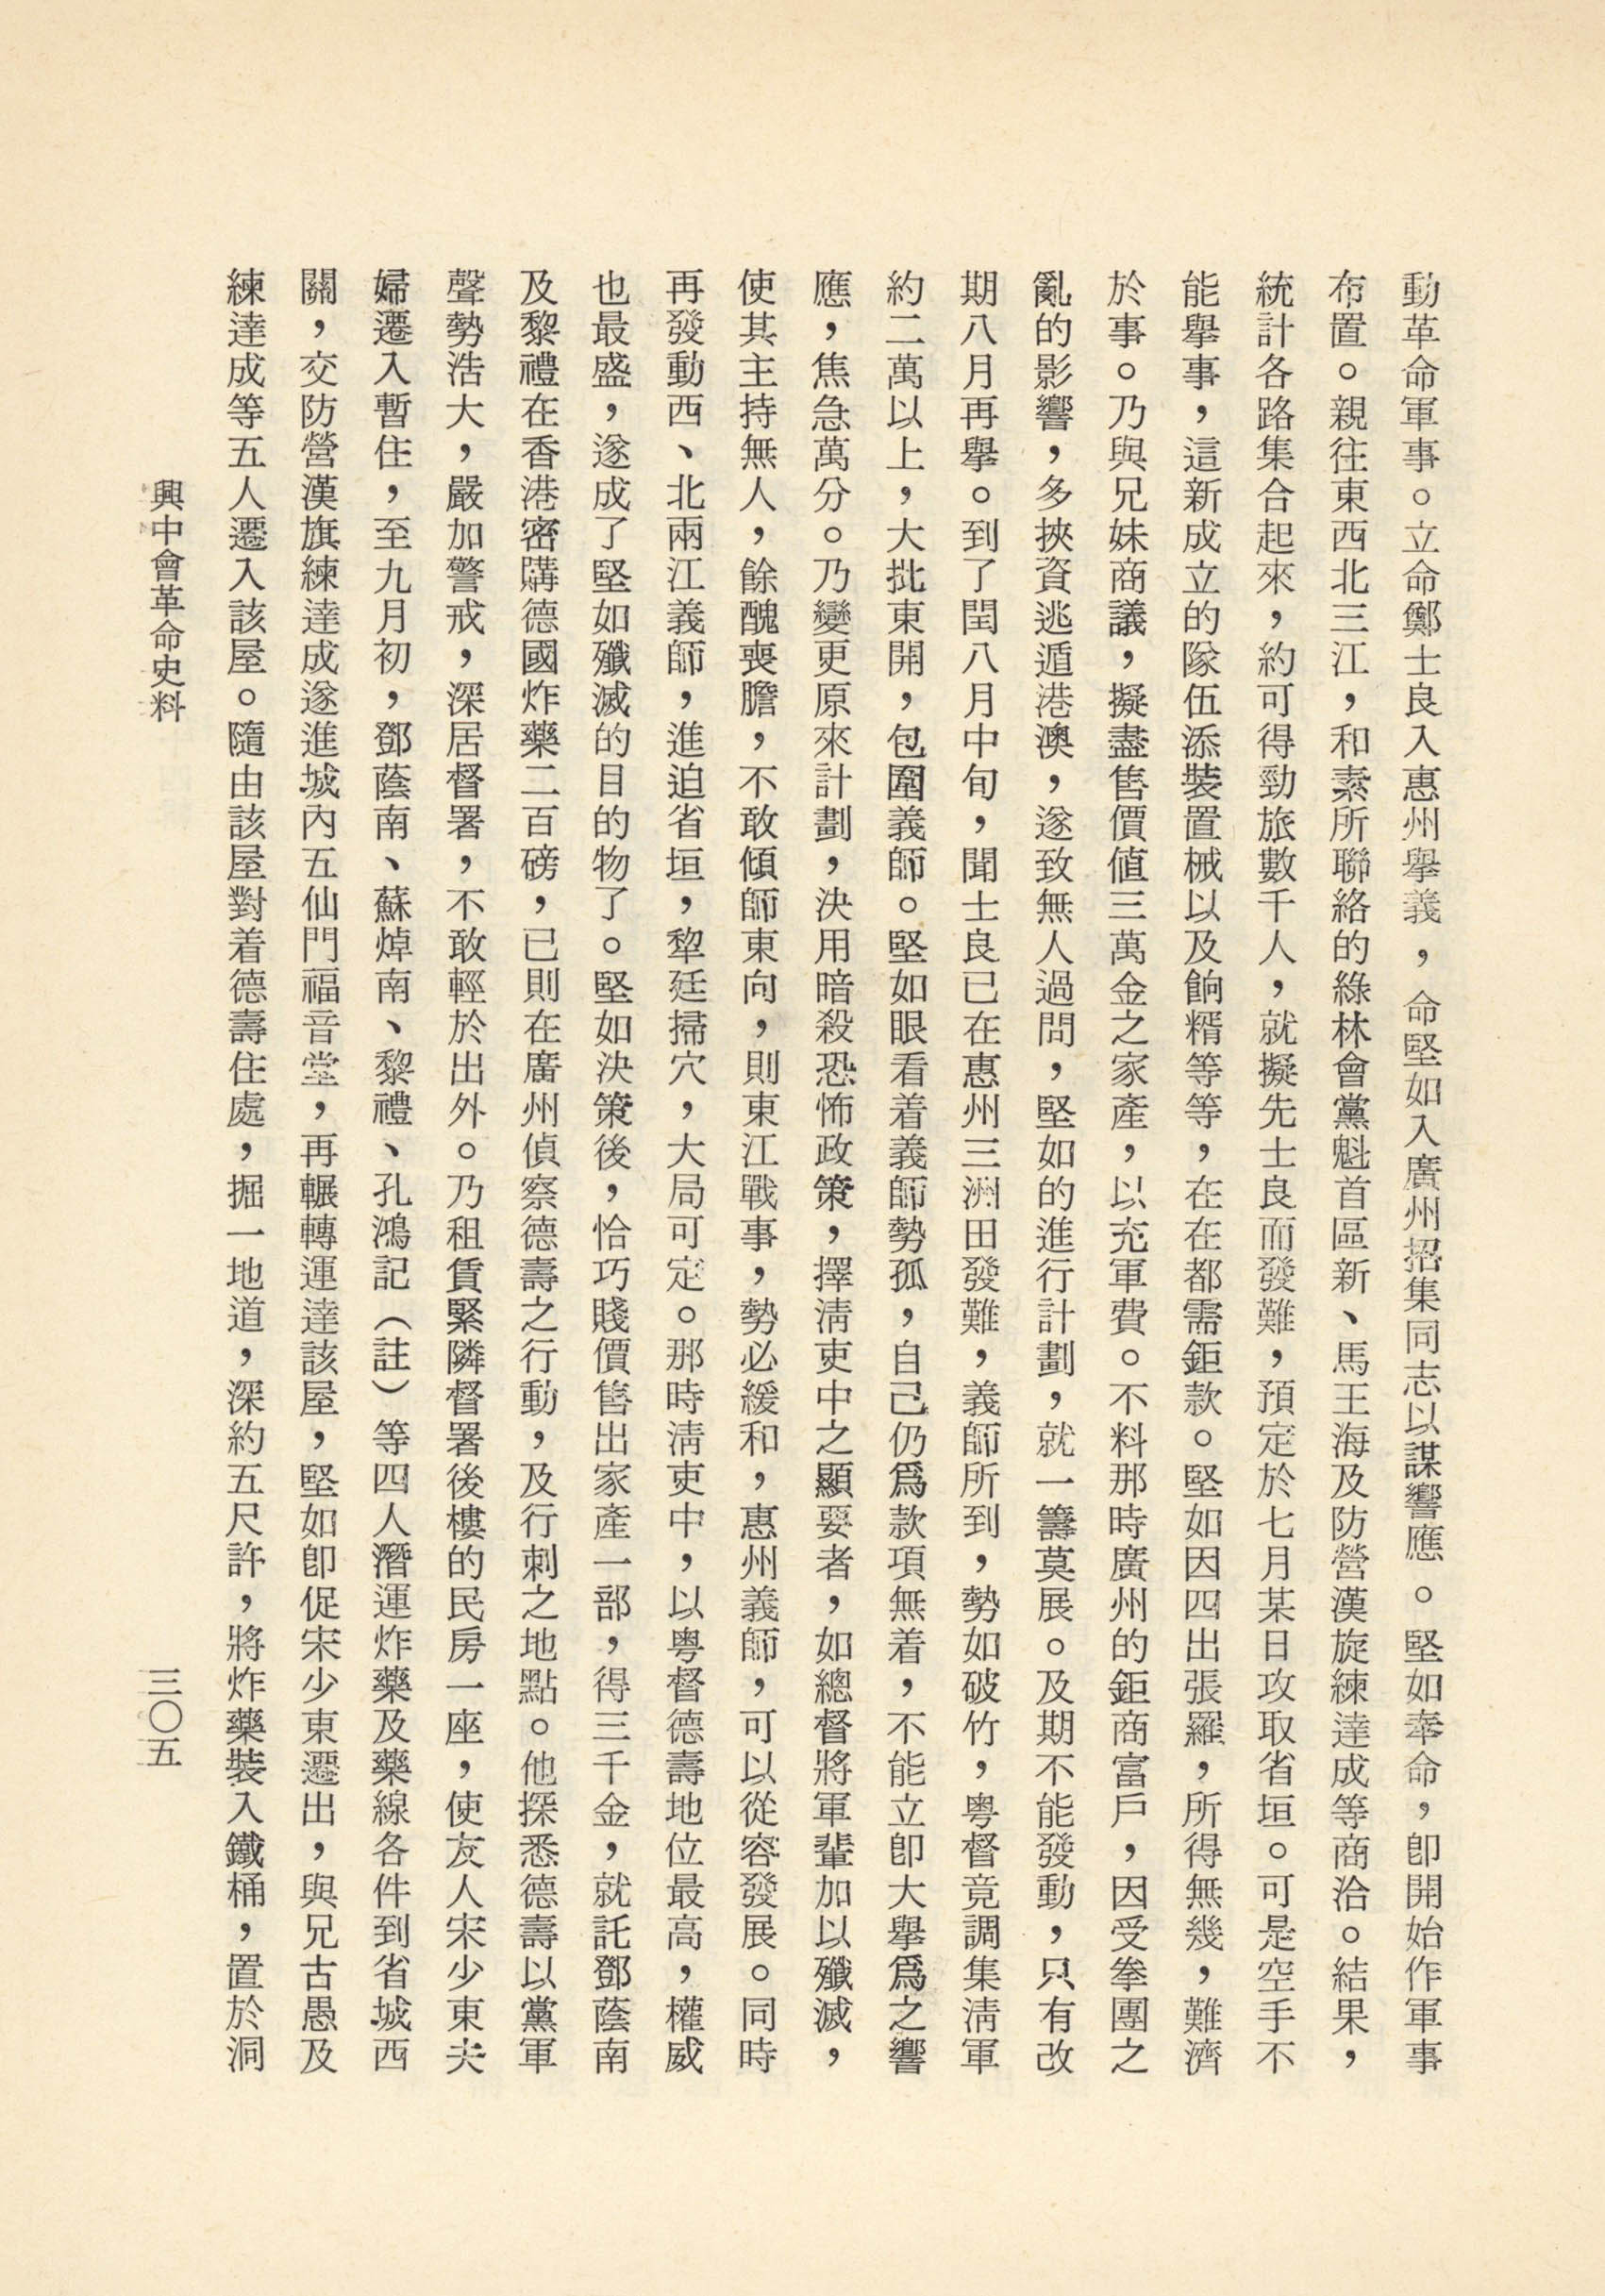 動革命軍事。立命鄭士良入惠州舉義，命堅如入廣州招集同志以謀響應。堅如奉命，卽開始作軍事
布置。親往東西北三江，和素所聯絡的綠林會黨魁首區新、馬王海及防營漢旋練達成等商洽。結果，
統計各路集合起來，約可得勁旅數千人，就擬先士良而發難，預定於七月某日攻取省垣。可是空手不
能舉事，這新成立的隊伍添裝置械以及餉糈等等，在在都需鉅款。堅如因四出張羅，所得無幾，難濟
於事。乃與兄妹商議，擬盡售價値三萬金之家產，以充軍費。不料那時廣州的鉅商富戶，因受拳團之
亂的影響，多挾資逃遁港澳，遂致無人過問，堅如的進行計劃，就一籌莫展。及期不能發動，只有改
期八月再舉。到了閏八月中旬，聞士良已在惠州三洲田發難，義師所到，勢如破竹，粤督竟調集淸軍
約二萬以上，大批東開，包圍義師。堅如眼看着義師勢孤，自己仍爲款項無着，不能立卽大舉爲之響
應，焦急萬分。乃變更原來計劃，決用暗殺恐怖政策，擇淸吏中之顯要者，如總督將軍輩加以殲滅，
使其主持無人，餘醜喪膽，不敢傾師東向，則東江戰事，勢必緩和，惠州義師，可以從容發展。同時
再發動西、北兩江義師，進迫省垣，犂廷掃穴，大局可定。那時淸吏中，以粤督德壽地位最高，權威
也最盛，遂成了堅如殲滅的目的物了。堅如決策後，恰巧賤價售出家產一部，得三千金，就託鄧蔭南
及黎禮在香港密購德國炸藥二百磅，已則在廣州偵察德壽之行動，及行刺之地點。他探悉德壽以黨軍
聲勢浩大，嚴加警戒，深居督署，不敢輕於出外。乃租賃緊隣督署後樓的民房一座，使友人宋少東夫
婦遷入暫住，至九月初，鄧蔭南、蘇焯南、黎禮、孔鴻記（註）等四人潛運炸藥及藥線各件到省城西
關，交防營漢旗練達成遂進城內五仙門福音堂，再輾轉運達該屋，堅如卽促宋少東遷出，與兄古愚及
練達成等五人遷入該屋。隨由該屋對着德壽住處，掘一地道，深約五尺許，將炸藥裝入鐵桶，置於洞
興中會革命史料
三〇五